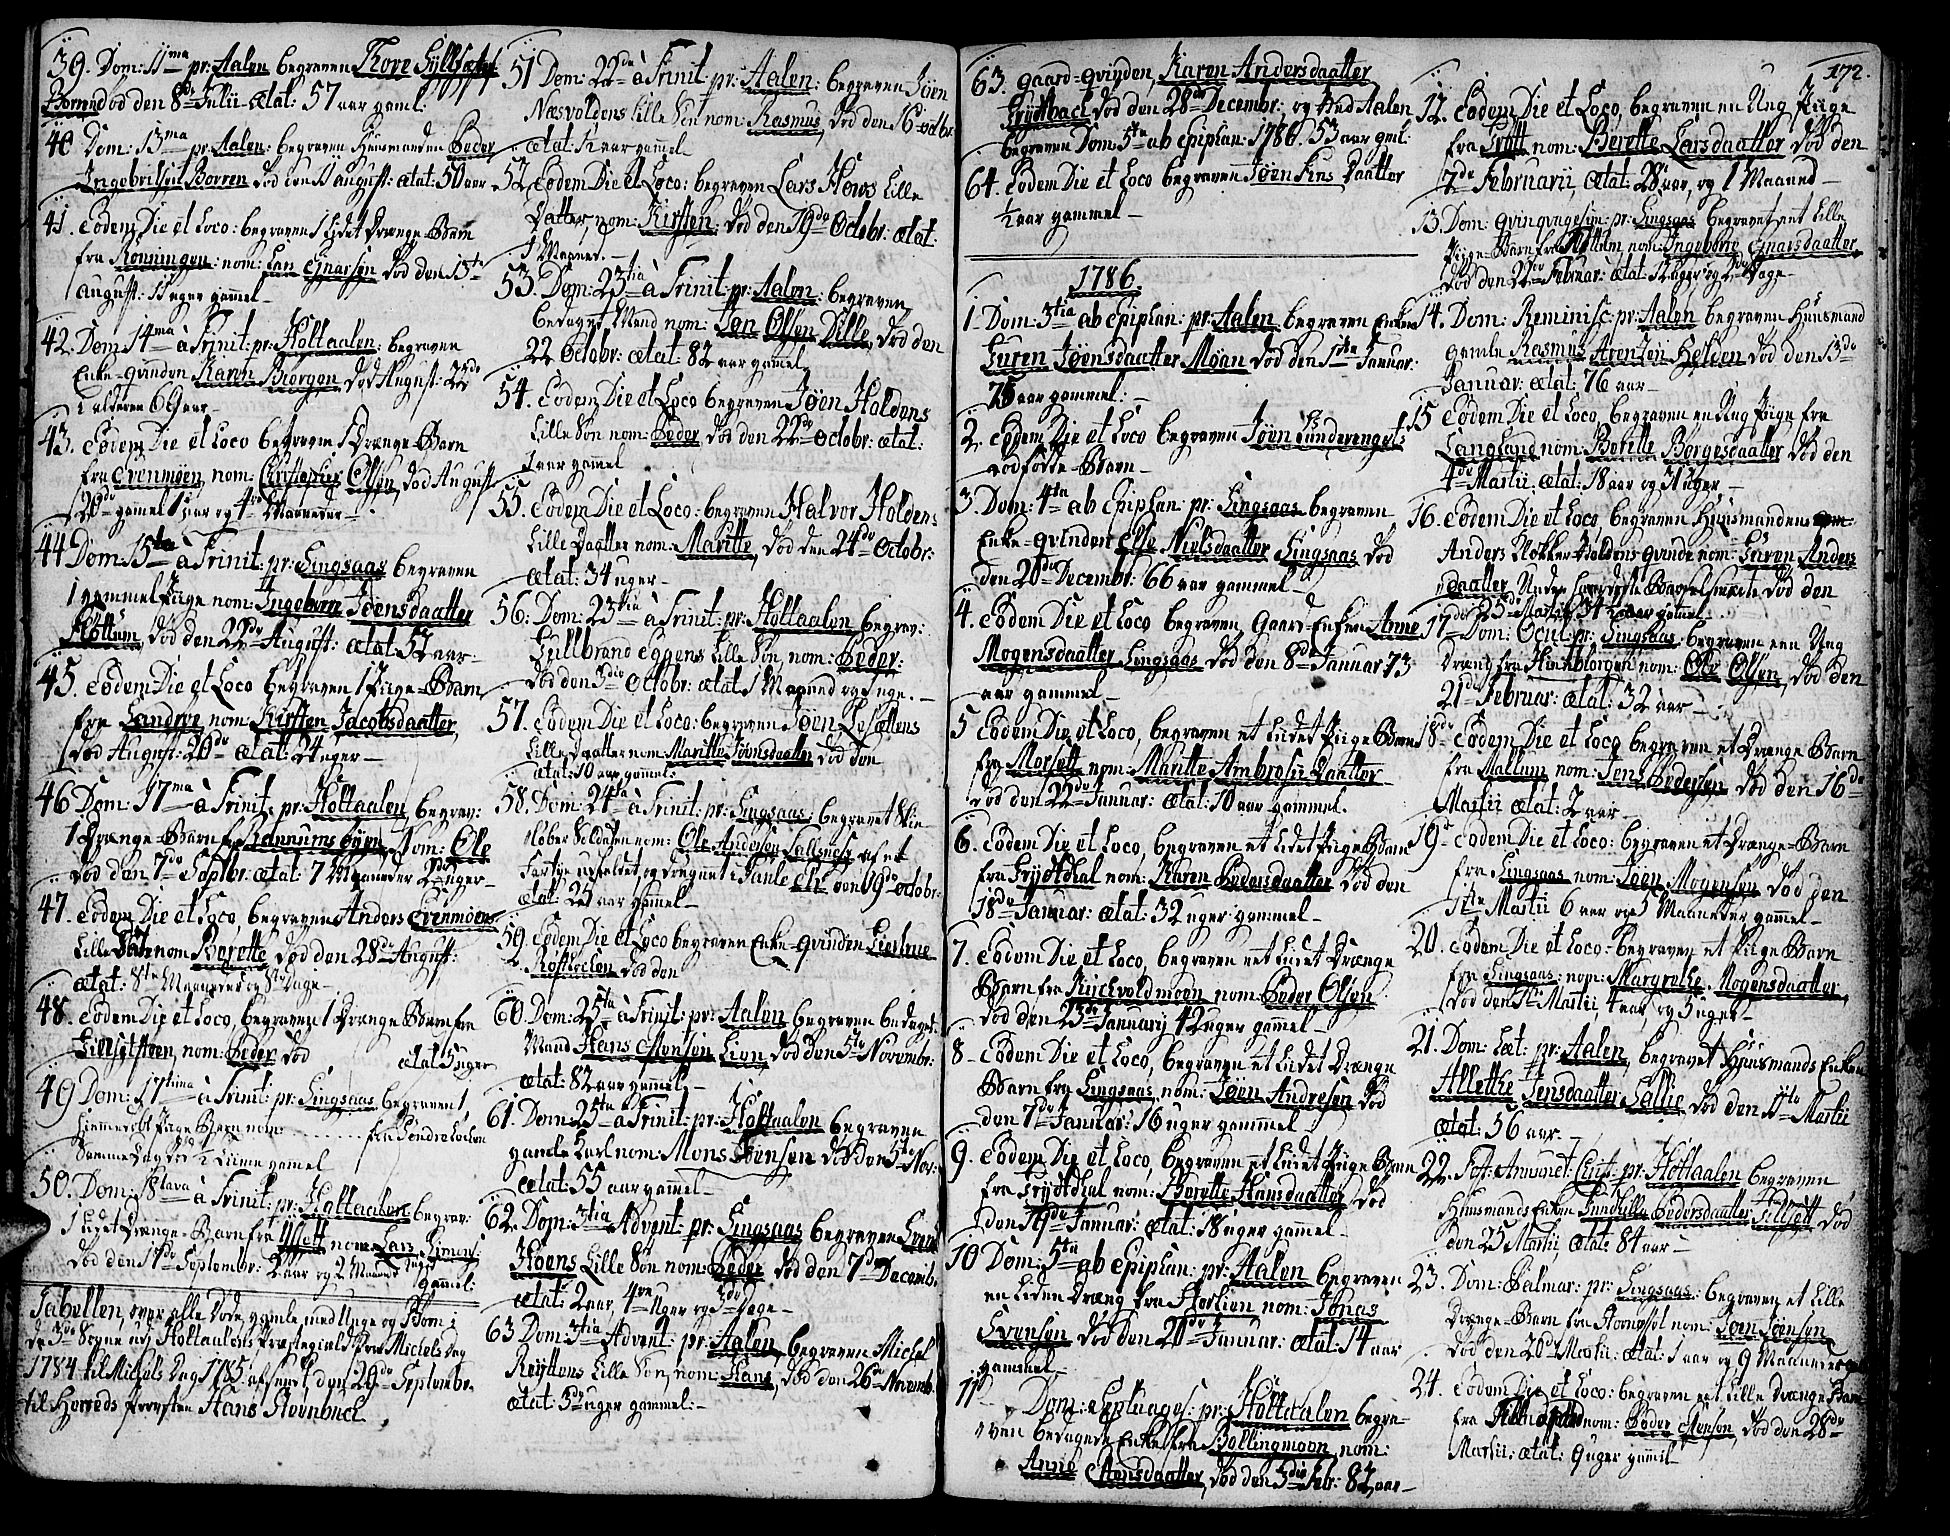 39. Dom: 11ma pr: Aalen begraven Thore
Borren død den 8de Julii ætat: 57 aar gaml:
40 Dom: 13ma pr: Aalen: begraven Huusmanden Peder
Ingebritsen Borren død den 11 august: ætat: 50 aar
41. Eodem Die et Loco: begraven 1 lidet Drænge Barn
fra Rønningen: nom: Lars Ejnarsen død den 15te
august: 11 uger gammel
42. Dom 14ma à Trinit: pr: Holtaalen: begraven
Enke-Qvinden Karen Borgen død August:
i alderen 69 aar
43. Eodem Die et Loco begraven 1 Drænge Barn
fra Evenmøen, nom: Christopher Olsen, død August
20de gamel 1 aar og 4re Maaneder
44 Dom: 15ta à Trinit: pr: Singsaas begraven
1 gammel Piige nom: Ingeborg Joensdaatter
Kottum, død den 22de August: ætat: 57 aar
45. Eodem Die et Loco begraven 1 Piige Barn
fra Landrøe nom: Kirsten Jacobsdaatter,
død August: 26de ætat: 24 uger
46 Dom: 17ma à Trinit: pr: Holtaalen, begrav:
1 Drænge-Barn fra Nom: Ole
død den 7de Septbr: ætat: 7 Maaneder 2 uger
47. Eodem Die et Loco, begraven Anders Evenmoens
Lille nom Berette død den 28de August:
ætat: 8te Maaneder og 8te Dage
48. Eodem Die et Loco, begraven 1 Drænge Barn fra
nom: Peder død ætat 5 uger
49 Dom: 17tima à Trinit: pr: Singsaas begraven 1,
hiemmedøbt Piige Barn nom: ........ fra
Samme Dag død ½ Time gamel
50. Dom: 18tava à Trinit: pr: Holtaalen, begrav:
1 lidet Drænge-Barn fra nom: Lars Simens:
død den 11de Septembr: 2 aar og 2 Maaneder
gamel:
Tabellen, over alle Døde, gamle med Unge og Børn i
de 3de Sogne udj Holtaalens Præstegield fra Michels dag
1784 til Michels Dag 1785, afsendt, den 29de Septembr:
til Herreds Provsten Hans Steenbuch
51 Dom: 22de à Trinit: pr: Aalen: begraven Jøen
Næsvoldens Lille Søn nom: Rasmus, død den 16 octbr
ætat: aar gamel
52, Eodem Die et Loco: begraven Lars Hows Lille
Datter, nom: Kirsten: død den 19de Octobr: ætat:
1 Maaned.
53. Dom: 23tia à Trinit: pr: Aalen: begraven
bedaget Mand nom: Jon Olsen Dille, død den
22 Octobr: ætat: 82 aar gamel
54. Eodem Die et Loco begraven Jøen Holdens
Lille Søn nom: Peder død den 22de Octobr: ætat:
1 aar gamel
55. Eodem Die et Loco: begraven Halvor Holdens
Lille Daatter nom: Maritte, død den 24de Octobr:
ætat: 34 uger
56: Dom: 23tia à Trinit: pr: Holtaalen begrav:
Hillbrand Eggens Lille Søn, nom: Peder:
død den 3die Octobr: ætat 1 Maaned og
57. Eodem Die et Loco: begraven Jøen
Lille Daatter nom: Maritte Joensdaatter død den
ætat: 10 aar gamel:
58. Dom: 24ta à Trinit: pr: Singsaas: begravet Skie
løber Soldaten nom: Ole Andersen af et
Fartøye og i Gaule Elv den 19de octobr:
ætat: 25 aar gamel
59. Eodem Die et Loco begraven Enke-Qvinden
død den
60. Dom: 25ta à Trinit: pr: Aalen, begraven bedaget
Mand Hans død den 5te Novembr:
ætat: 82 aar gamel
61. Dom: 25ta à Trinit: pr: Holtaalen begraven
gamle Karl nom: Mons Joensen død den 5te Nov:
ætat: 55 aar gamel
62. Dom: 3tia Advent: pr: Singsaas begraven
Hoens Lille Søn nom: Peder død den 7de Decemb:
ætat: 2 aar, 4re Uger og 3de Dage
63 Dom: 3tia Advent: pr: Aalen, begraven Michel
Reyttens Lille Søn, nom: Hans, død den 26de Novemb:
ætat: 3de uger gammel:
63. Gaard-Qvinden, Karen Andersdaatter
død den 28de Decembr: og ved Aalen
begraven Dom: 5ta ab Epiphan: 1786. 53 aar gml:
64. Eodem Die et Loco begraven Jøen Fins Daatter
½ aar gammel
1786.
1 Dom: 3tia ab Epiphan: pr: Aalen begraven Enken
Guren Jøensdaatter Møan død den 1ste Januar:
75 aar gammel:
2. Eodem Die et Loco begraven Jøen
dødfødte Barn
3. Dom: 4ta ab Epiphan: pr: Singsaas begraven
Enke-Qvinden Else Nielsdaatter Singsaas død
den 20de Decembr: 66 aar gammel
4. Eodem Die et Loco begraven Gaard-Enken Anne
Mogensdaatter Singsaas død den 8de Januar 73
aar gammel
5 Eodem Die et Loco, begraven et lidet Piige Barn
fra Morsett nom: Maritte Ambrosii Daatter
død den 22de Januar: ætat: 10 aar gammel.
6. Eodem Die et Loco, begraven et lidet Piige Barn
fra Frijdtdal nom: Karen Pedersdaatter død den
18de Januar: ætat: 32 uger gammel
7. Eodem Die et Loco, begraven et lidet Drænge
Barn fra nom: Peder Olsen
død den 23de January 42 uger gamel
8 Eodem Die et Loco, begraven et lidet Drænge
Barn fra Singsaas nom: Jøen Andresen død
den 7de Januar: 16 uger gammel
9. Eodem Die et Loco, begraven et lidet Piige Barn
fra Frijdtdal nom: Berette Hansdaatter død
den 19de Januar: ætat: 18 uger gammel
10 Dom: 5ta ab Epiphan: pr: Aalen begraven
en liden Dræng fra Storlien nom: Jonas
Svensen død den 20de Januar: ætat: 14 aar
gammel
11. Dom: pr: Holtaalen begra-
ven bedagede Enke fra Bollingmoen, nom:
Anne død den 3die Febr: 82 aar
172.
12. Eodem Die et Loco, begraven en Ung Piige
fra nom: Berette Larsdaatter død den
7de Februarii, ætat: 28 aar, og 1 Maaned
13. Dom: Qvinqvagesim: pr: Singsaas begravet ent Lille
Piige-Barn fra Kottum nom: Ingeborg Ejnarsdaatter
død den 22de Februar: ætat: 12 uger og 2de Dage
14. Dom: Reminisc: pr: Aalen begraven Huusmand
gamle Rasmus Arenzen Helden død den 13de
Januar: ætat: 76 aar
15 Eodem Die et Loco, begraven en Ung Piige fra
Langland nom: Berette Børgesdaatter død den
4de Martii. ætat: 18 aar og 31 uger
16. Eodem Die et Loco begraven Huusmandens
Anders Klokker Holdens Qvinde nom: Guren Anders
daatter Under død den
25de Martii 34½ aar gamel
17de Dom: Ocul: pr: Singsaas begraven een Ung
Dræng fra nom: Ole Olsen, død den
21de Februar: ætat: 32 aar
18de Eodem Die et Loco begraven et Drænge Barn
fra Mallum nom: Jens Pedersen død den 16de
Martii ætat: 2 aar
19. Eodem Die et Loco: begraven et Drænge-Barn
fra Singsaas nom: Joen Mogensen død den
Martii 6 aar og 5 Maaneder gamel
20. Eodem Die et Loco: begraven et Piige Barn
fra Singsaas: nom: Margrethe Mogensdaatter,
død den Martii 4 aar, og 5 uger
21. Dom: Læt: pr: Aalen, begravet Huusmands Enken
Allethe Jensdaatter død den 11te Martii
ætat: 56 aar
22. Fest: Annunct: Christ: pr: Holtaalen begraven
Huusmands Enken Gunhille Pedersdaatter død
den 25 Martii, ætat: 84 aar
23. Dom: Palmar: pr: Singsaas: begraven et Lille
Drænge-Barn fra nom: Joen Joensen
død den 20de Martii: ætat: 1 aar og 9 Maaneder
24. Eodem Die et Loco: begraven et Lille Drænge Barn
fra nom: Peder død den 28de
Martii: ætat: 9 uger gamel